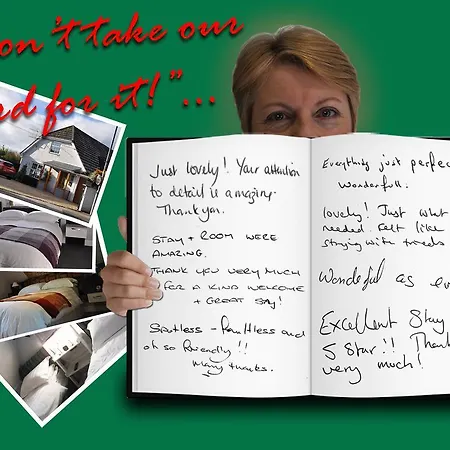 on't take our
rd for it!"...
Just lovely! Your attention
to detail is amazing.
Thank you.
STAY + ROOM WERE
AMAZING.
THANK YOU VERY MUCH
FOR A KIND WELCOME
+ GREAT STAY!
Spotless - Faultless and
oh so friendly!!
Many thanks.
Everything just perfec
wonderfull.
lovely! Just what
needed. Felt like
staying with friends
Wonderful as ev
Excellent Stay
5 Star!! Thank
very much!